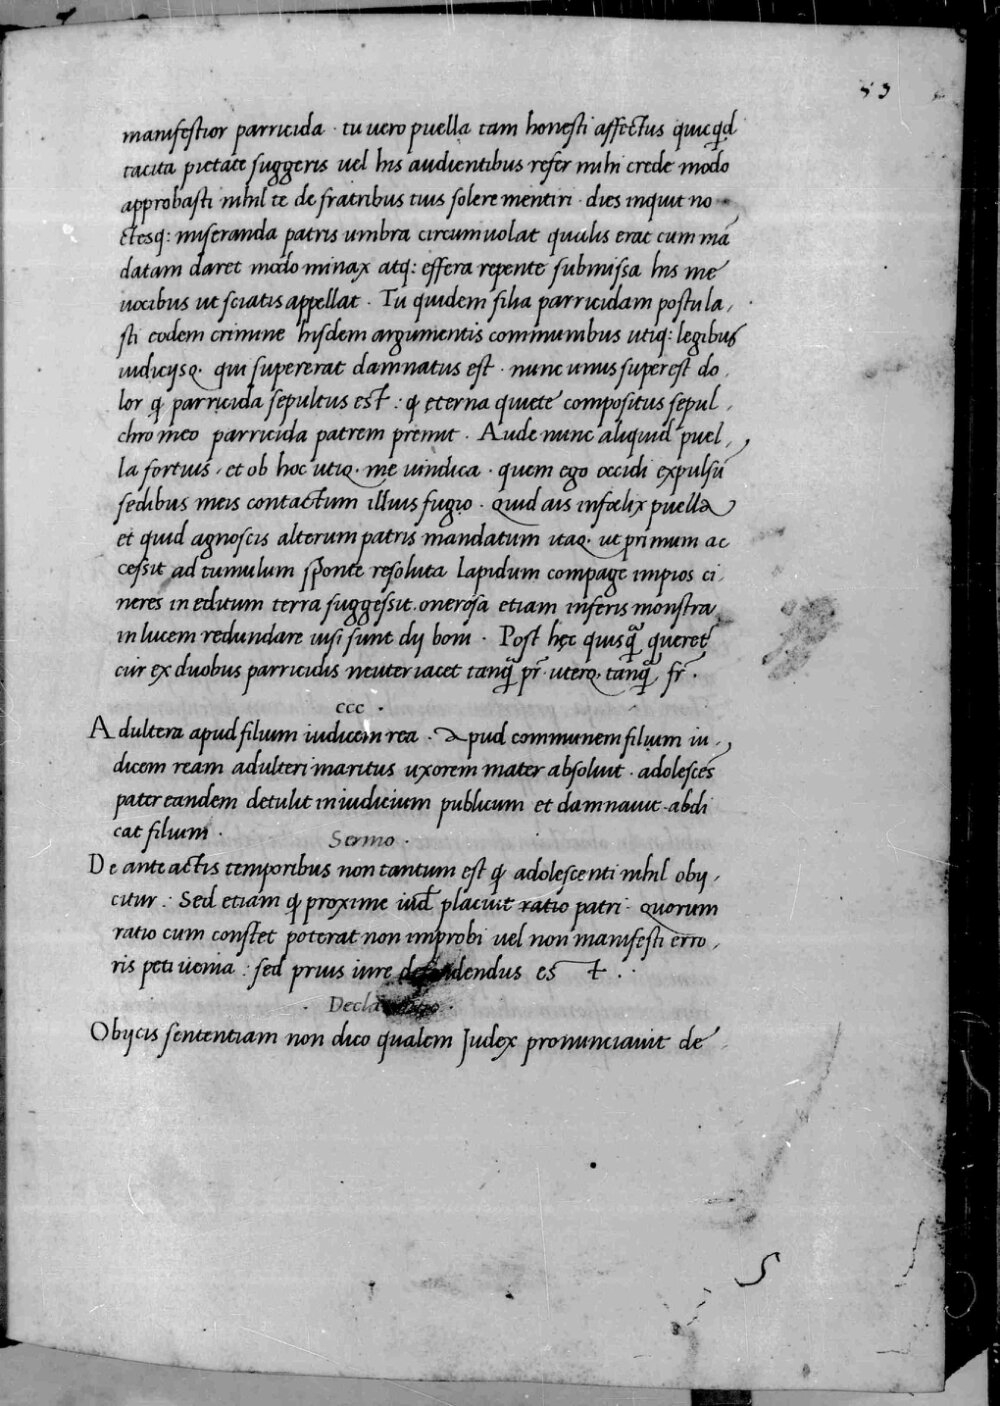 53
manifestior parricida · tu uero puella tam honesti affectus quicq̃d
tacita pietate suggeris uel his audientibus refer mihi crede modo
approbasti nihil te de fratribus tuis solere mentiri · dies inquit no
ctesq: miseranda patris umbra circumuolat qualis erat cum mã
datam daret modo minax atq: effera repente submissa his me
uocibus ut sciatis appellat · Tu quidem filia parricidam postula,
sti eodem crimine hisdem argumentis communibus utiq: legibus
iudicijsq. qui supererat damnatus est · nunc unus superest do,
lor q̃ parricida sepultus est : q̃ eterna quiete compositus sepul,
chro meo parricida patrem premit · Aude nunc aliquid puel,
la fortius, et ob hoc utiq. me uindica · quem ego occidi expulsũ
sedibus meis contactum illius fugio · quid ais infœlix puella
et quid agnoscis alterum patris mandatum itaq. ut primum ac
cessit ad tumulum sponte resoluta lapidum compage impios ci,
neres in editum terra suggessit. onerosa etiam inferis monstra
in lucem redundare iusi sunt dij boni · Post hęc quisq̃ queret
cur ex duobus parricidis neuter iacet tanq̃ pr̃ · uterq. tanq̃ fr̃ ·
ccc ·
Adultera apud filium iudicem rea · Apud communem filium iu,
dicem ream adulteri maritus uxorem mater absoluit · adolescẽs
pater eandem detulit in iudicium publicum et damnauit · abdi
cat filium ·
Sermo ·
De ante actis temporibus non tantum est q̃ adolescenti nihil obij,
citur : Sed etiam q̃ proxime iud placuit ratio patri · quorum
ratio cum constet poterat non improbi uel non manifesti erro,
ris peti uenia : sed prius iure defendendus es t .·
· Declamatio ·
Obijcis sententiam non dico qualem Judex pronunciauit de,